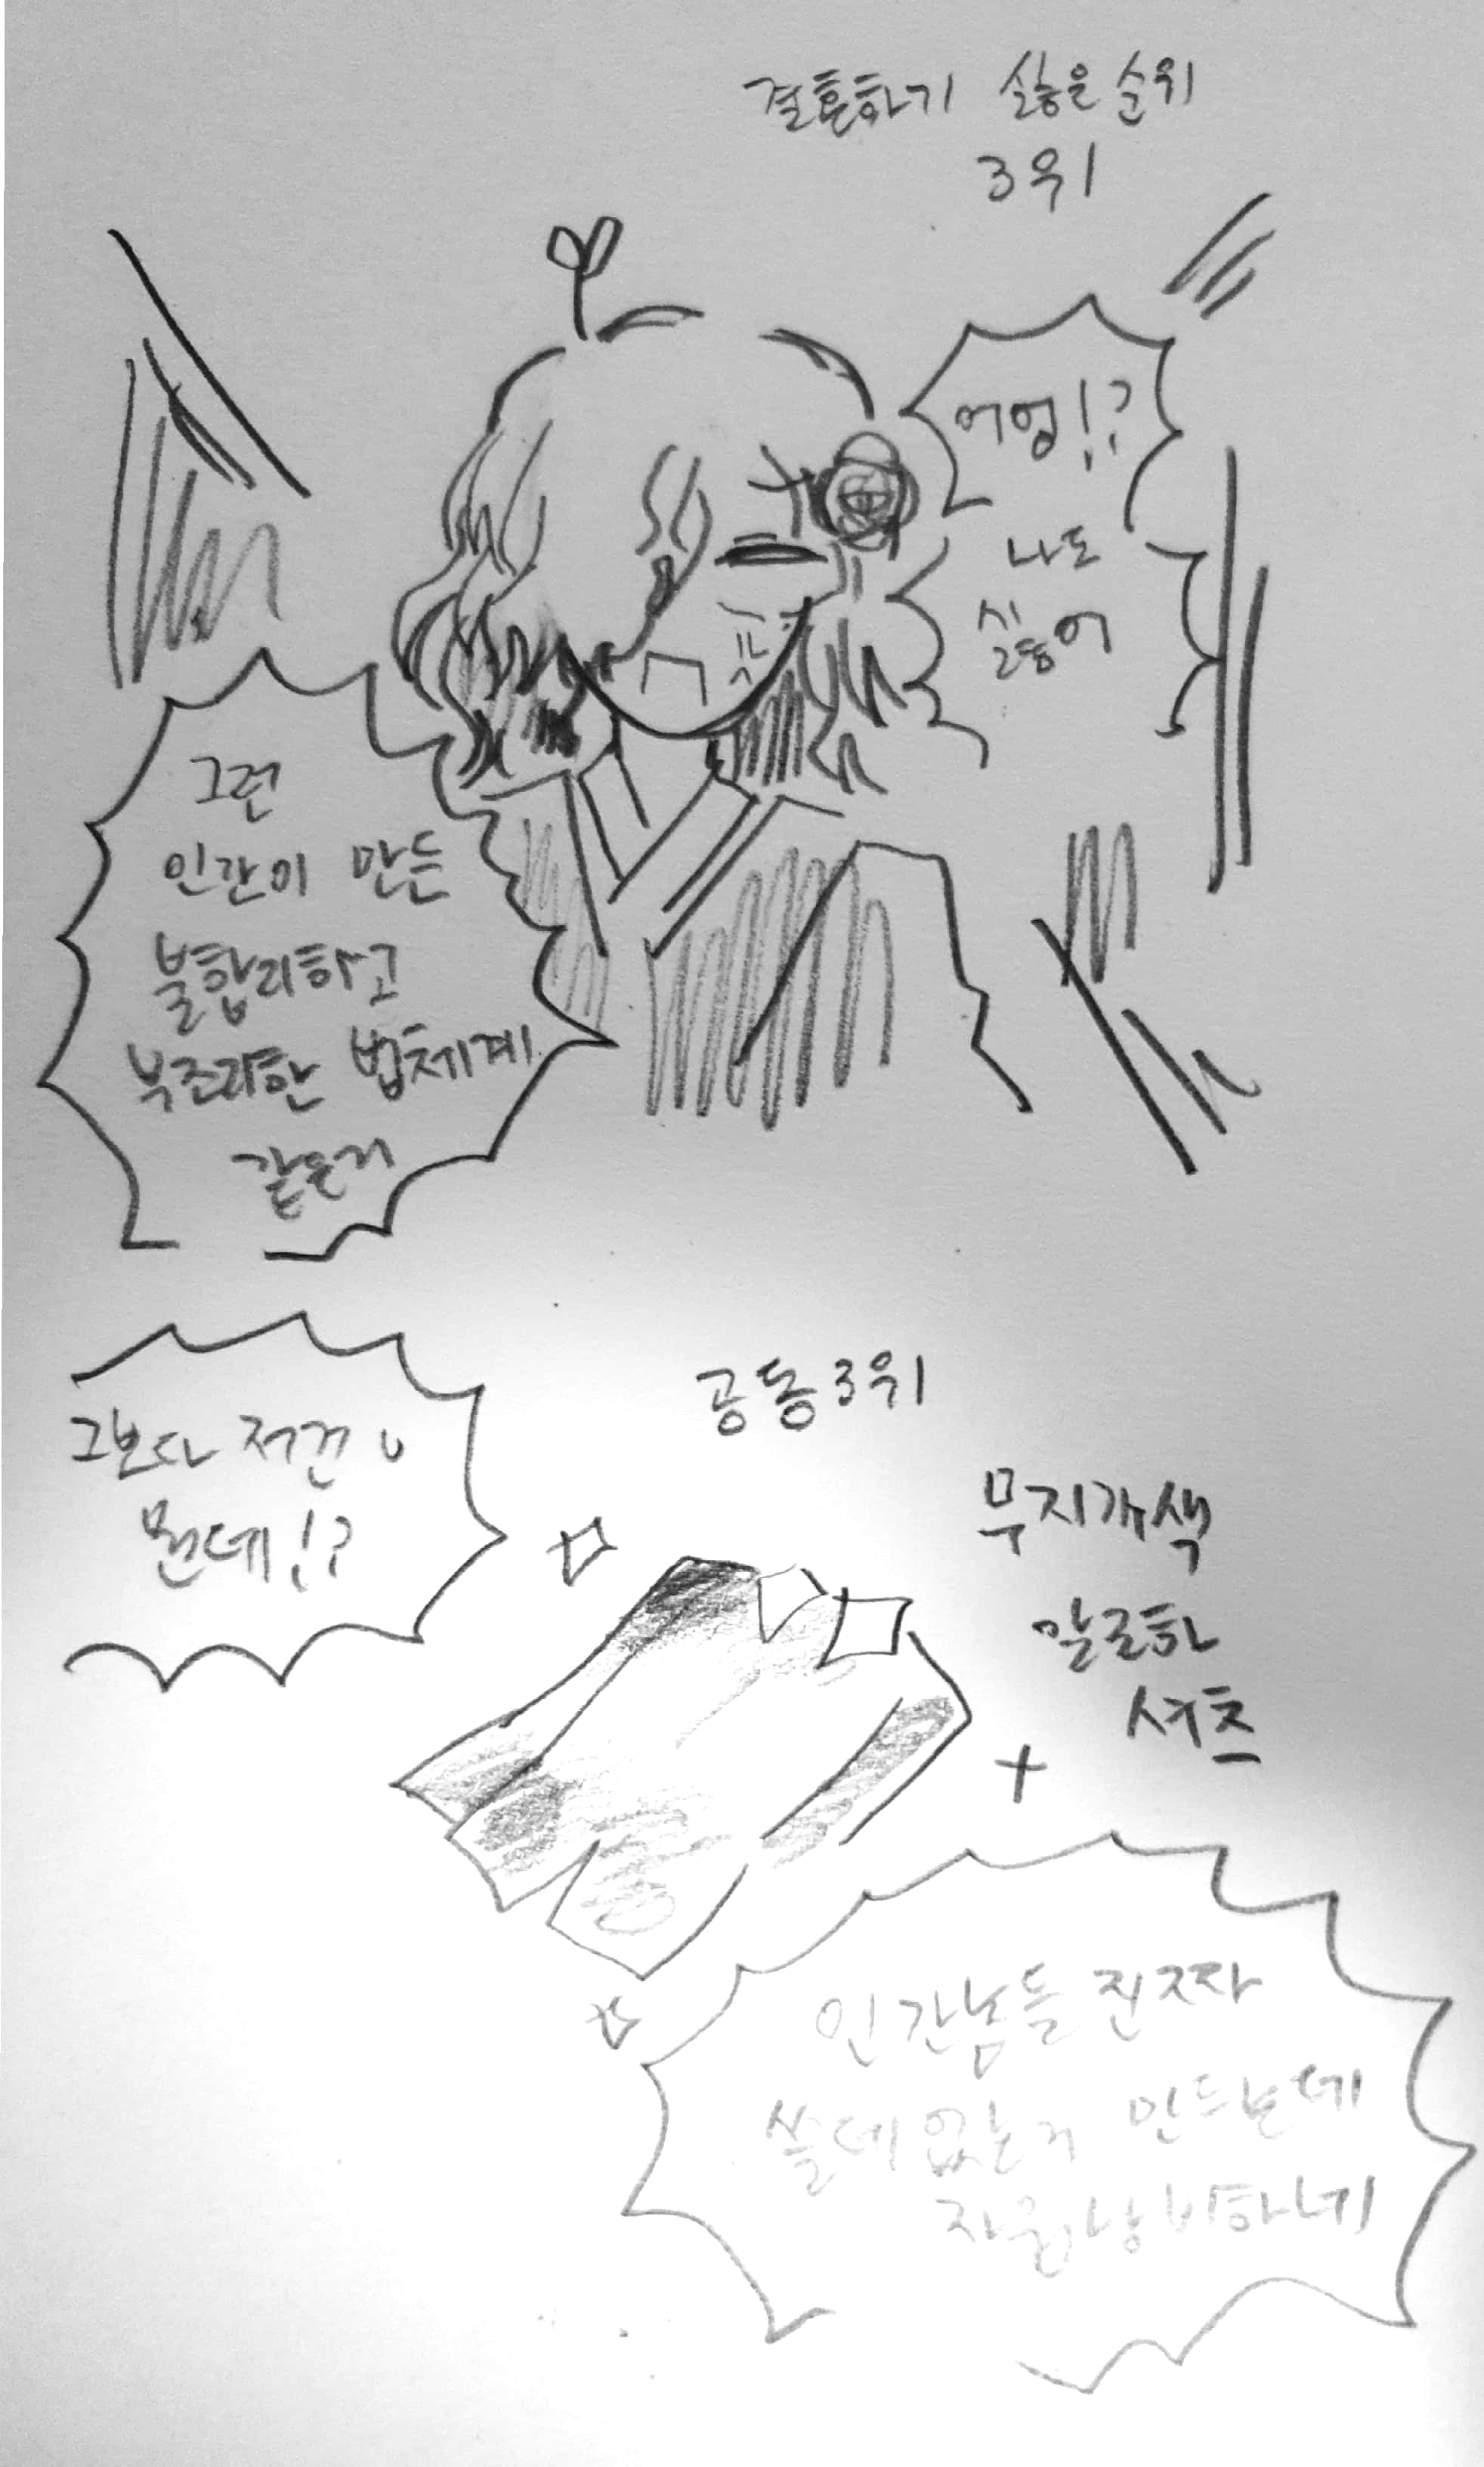 결혼하기 싫은 순위
3위
어엉!?
나도
싫어
그런
인간이 만든
불합리하고
부조리한 법체계
같은거
공동3위
그보다 저건
뭔데!?
무지개색
알로하
셔츠
인간놈들 진짜
쓸데없는거 만드는데
자원낭비하네